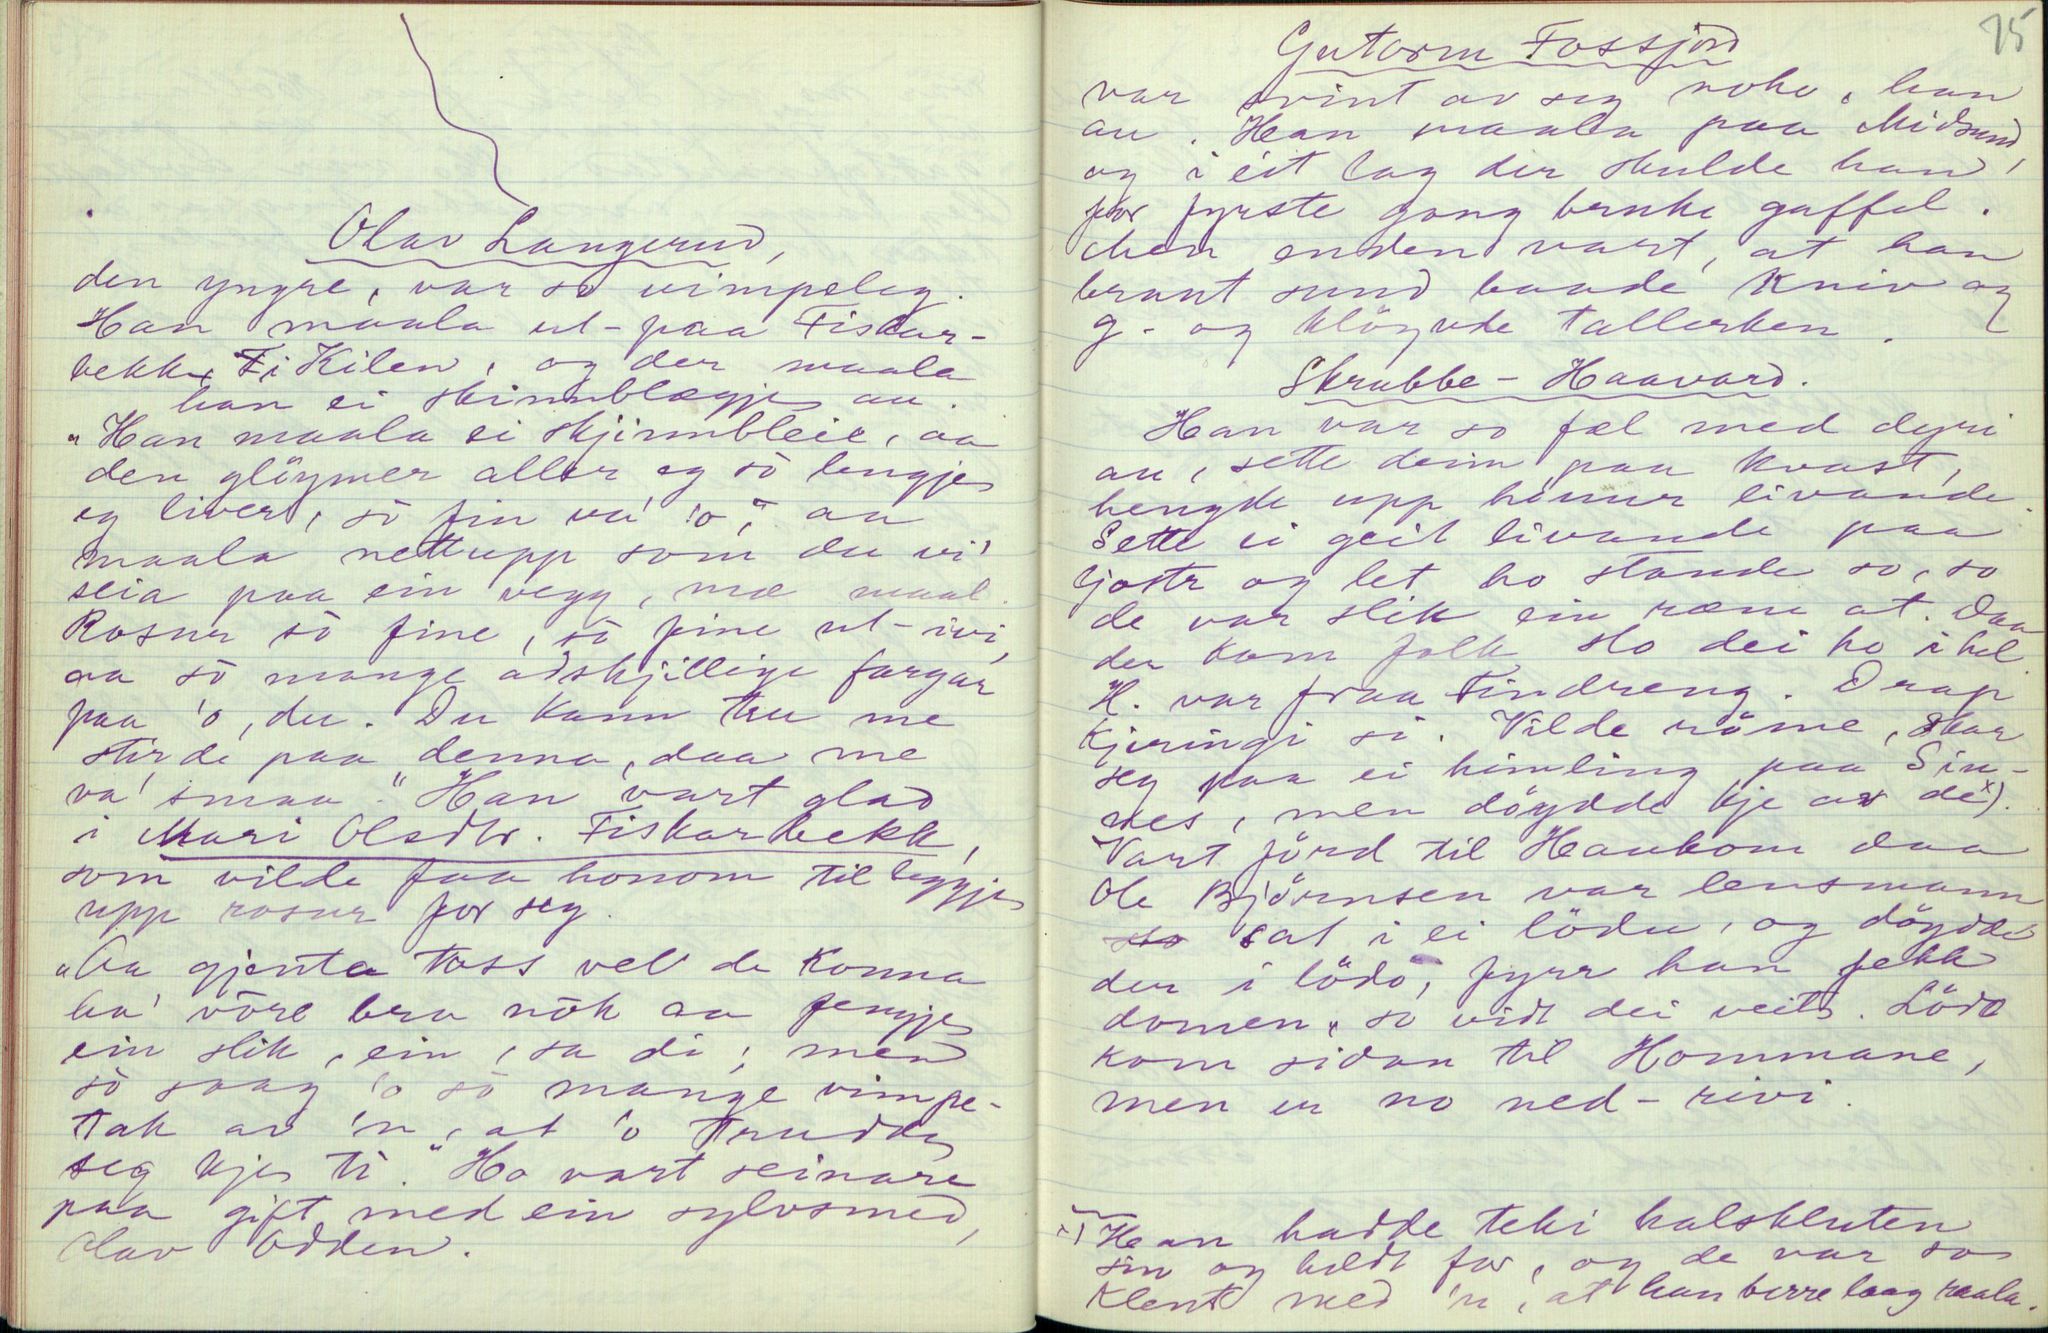 Olav Langerud,
den yngre, var so vimpeleg.
Han maala ut-paa Fiskar-
bekk, i Kilen, og der maala
han ei skinnblægje au.
"Han maala ei skjinnbleie, aa
den glöymer aller eg sò lengje
eg liver, sò fin va' 'o, aa
maala nettupp som du vi'
seia paa ein vegg, mæ maal.
Rosur sò fine, sò fine ut-ivi,
aa sò mange adskjillige fargar
paa 'o, du. Du kann tru me
stirde paa denna, daa me
va' smaa." Han vart glad
i Mari Olsdtr. Fiskarbekk,
som vilde faa honom til leggje
upp rosur for seg.
"Aa gjenta tøss vel de konna
ha' vòre bra nòk aa fengje
ein slik, ein, sa di, men
sò saag 'o sò mange vimpe-
tak av 'n, at 'o trudde
seg kje ti." Ho vart seinare
paa gift med ein sylvsmed,
Olav Odden.
75
Gutorm Fossjord
var svint av seg noko, han
au. Han maala paa Midsund,
og i eit lag der skulde han
for fyrste gong bruke gaffel.
Men enden vart, at han
braut sund baade kniv og
g. og klöyvde tallerken.
Skrubbe-Haavard.
Han var so fæl med dyri
au, sette deim paa kvast,
hengde upp hönur livande.
Sette ei geit livande paa
ljostr og let ho stande so, so
de var slik ein ræme at. Daa
der kom folk, slo dei ho i hel.
H. var fraa Tindreng. Drap
kjeringi si. Vilde röme, skar
seg paa ei himling paa Sin-
nes, men döydde kje av de x).
Vart förd til Haukom daa
Ole Björnsen var lensmann
sat i ei lödu, og döydde
der i lödo, fyrr han fekk
domen, so vidt dei veit. Lödo
kom sidan til Hommane,
men er no ned-rivi.
x) Han hadde teki halskluten
sin og heldt for, og de var so
kleint med 'n, at han berre laag raala.